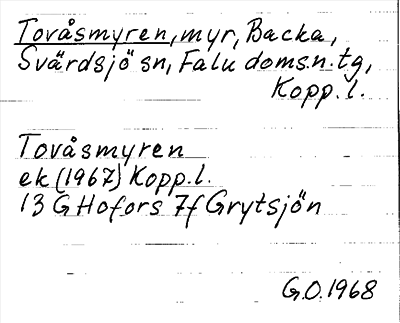 Tovåsmyren, myr, Backa,
Svärdsjö sn, Falu doms.n.tg,
Kopp.l.
Tovåsmyren
ek (1967) Kopp.l.
13 G Hofors 7f Grytsjön
G.O. 1968